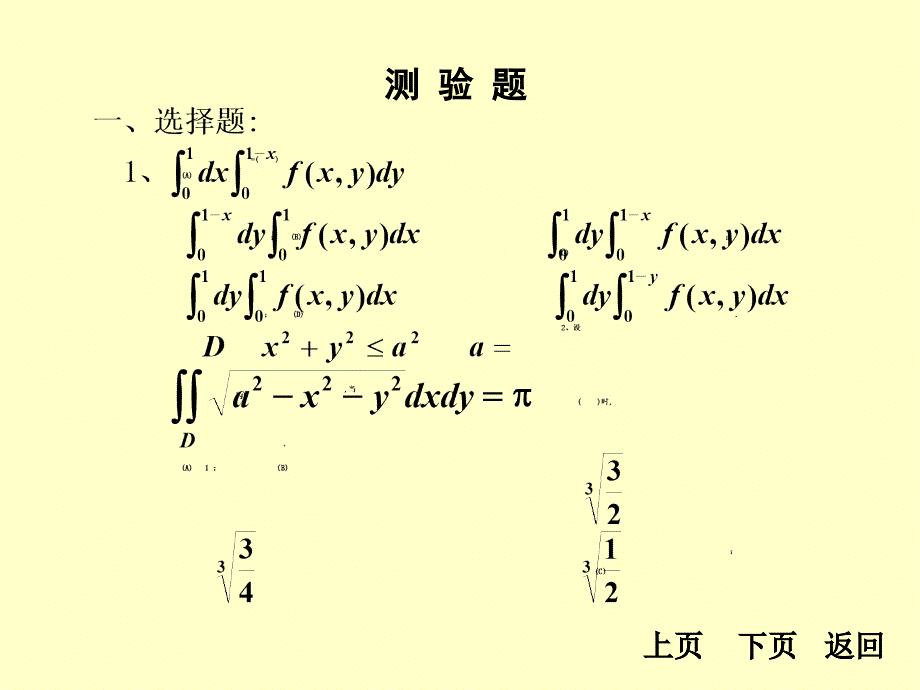 测 验 题
一、选择题:
1、∫₀¹ dx ∫₀^{1−x} f(x, y)dy =( )
(A) ∫₀^{1−x} dy ∫₀¹ f(x, y)dx (B) ∫₀¹ dy ∫₀^{1−x} f(x, y)dx
∫₀¹ dy ∫₀¹ f(x, y)dx ; (D) ∫₀¹ dy ∫₀^{1−y} f(x, y)dx .
2、设
D x² + y² ≤ a² a =
∬_D √(a² − x² − y²) dxdy = π ,当 ( )时,
(A) 1 ; (B)
∛(3/2)
∛(3/4) (C) ∛(1/2) ;
上页 下页 返回